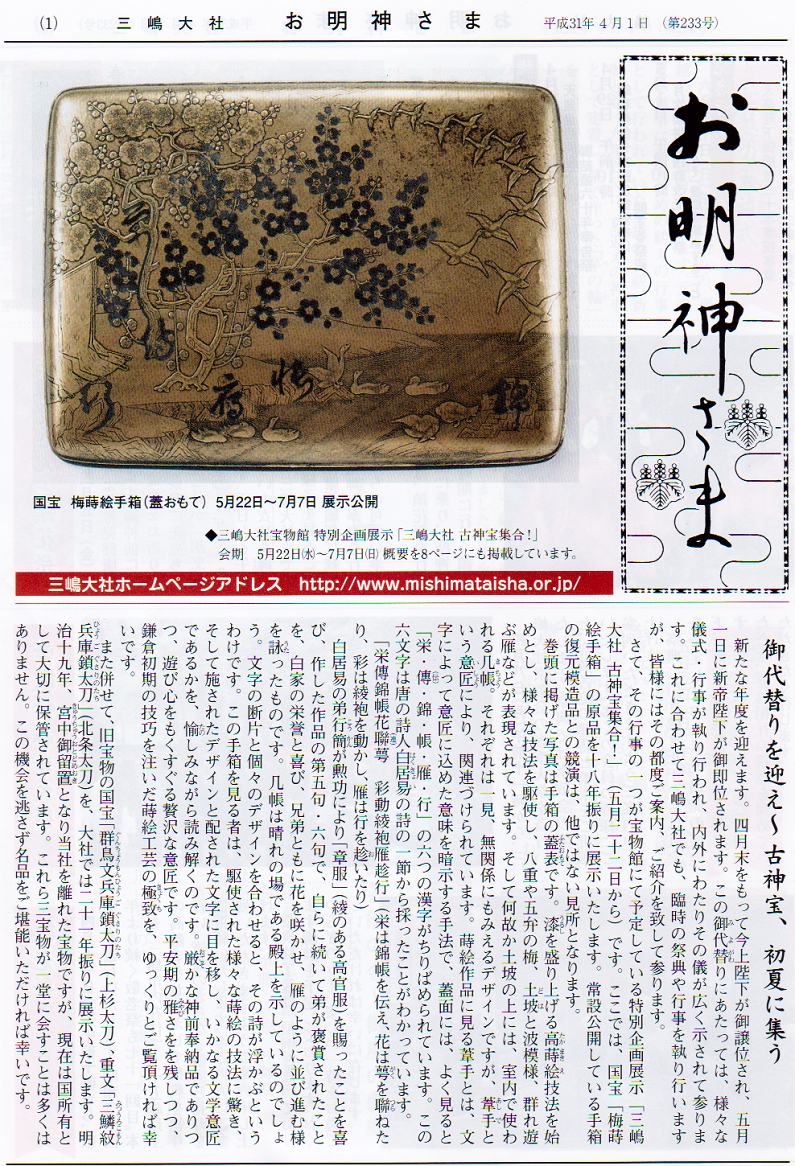 (1)
三嶋大社
お明神さま
平成31年4月1日 (第233号)
お明神さま
傳
帳
雁
行
錦
国宝 梅蒔絵手箱(蓋おもて) 5月22日〜7月7日 展示公開
◆三嶋大社宝物館 特別企画展示「三嶋大社 古神宝集合!」
会期 5月22日㈬〜7月7日㈰ 概要を8ページにも掲載しています。
三嶋大社ホームページアドレス http://www.mishimataisha.or.jp/
御代替りを迎え〜古神宝、初夏に集う
新たな年度を迎えます。四月末をもって今上陛下が御譲位され、五月
一日に新帝陛下が御即位されます。この御代替りにあたっては、様々な
儀式・行事が執り行われ、内外にわたりその儀が広く示されて参りま
す。これに合わせて三嶋大社でも、臨時の祭典や行事を執り行います
が、皆様にはその都度ご案内、ご紹介を致して参ります。
さて、その行事の一つが宝物館にて予定している特別企画展示「三嶋
大社 古神宝集合!」(五月二十二日から)です。ここでは、国宝「梅蒔
絵手箱」の原品を十八年振りに展示いたします。常設公開している手箱
の復元模造品との競演は、他ではない見所となります。
巻頭に掲げた写真は手箱の蓋表です。漆を盛り上げる高蒔絵技法を始
めとし、様々な技法を駆使し、八重や五弁の梅、土坡と波模様、群れ遊
ぶ雁などが表現されています。そして何故か土坡の上には、室内で使わ
れる几帳。それぞれは一見、無関係にもみえるデザインですが、葦手と
いう意匠により、関連づけられています。蒔絵作品に見る葦手とは、文
字によって意匠に込めた意味を暗示する手法で、蓋面には、よく見ると
「栄・傳・錦・帳・雁・行」の六つの漢字がちりばめられています。この
六文字は唐の詩人白居易の詩の一節から採ったことがわかっています。
「栄傳錦帳花聯萼 彩動綾袍雁趁行」(栄は錦帳を伝え、花は萼を聯ねた
り、彩は綾袍を動かし、雁は行を趁いたり)
白居易の弟行簡が勲功により「章服」(綾のある高官服)を賜ったことを喜
び、作した作品の第五句・六句で、自らに続いて弟が褒賞されたこと
を、白家の栄誉と喜び、兄弟ともに花を咲かせ、雁のように並び進む様
を詠ったものです。几帳は晴れの場である殿上を示しているのでしょ
う。文字の断片と個々のデザインを合わせると、その詩が浮かぶという
わけです。この手箱を見る者は、駆使された様々な蒔絵の技法に驚き、
そして施されたデザインと配された文字に目を移し、いかなる文学意匠
であるかを、愉しみながら読み解くのです。厳かな神前奉納品でありつ
つ、遊び心をもくすぐる贅沢な意匠です。平安期の雅さをを残しつつ、
鎌倉初期の技巧を注いだ蒔絵工芸の極致を、ゆっくりとご覧頂ければ幸
いです。
また併せて、旧宝物の国宝「群鳥文兵庫鎖太刀」(上杉太刀)、重文「三鱗紋
兵庫鎖太刀」(北条太刀)を、大社では二十一年振りに展示いたします。明
治十九年、宮中御留置となり当社を離れた宝物ですが、現在は国所有と
して大切に保管されています。これら三宝物が一堂に会すことは多くは
ありません。この機会を逃さず名品をご堪能いただければ幸いです。